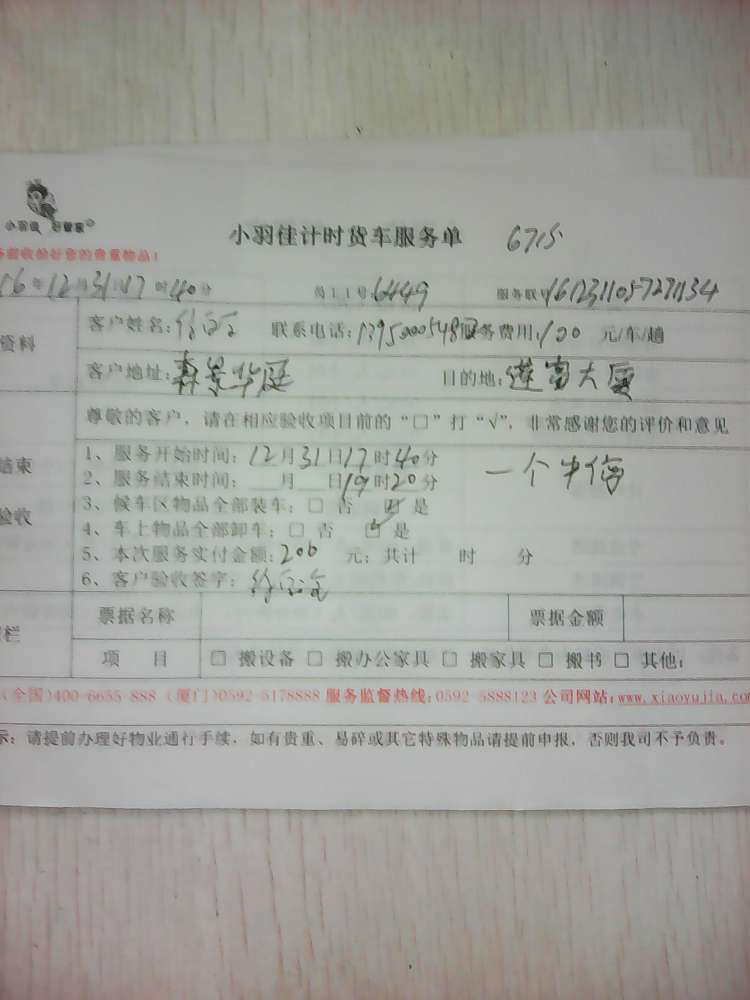 小羽佳 好管家
小羽佳计时货车服务单 6715
收拾好您的贵重物品!
16年12月31日17时40分 员工工号:6449 服务联单1612311057271134
资料
客户姓名: 联系电话: 服务费用:100 元/车/趟
客户地址:森景华庭 目的地:莲富大厦
尊敬的客户,请在相应验收项目前的“□”打“√”,非常感谢您的评价和意见
结束
验收
1、服务开始时间:12月31日17时40分
2、服务结束时间: 月 日19时20分
一个中
3、候车区物品全部装车:□ 否 ☑ 是
4、车上物品全部卸车:□ 否 ☑ 是
5、本次服务实付金额:200 元;共计 时 分
6、客户验收签字:
栏
票据名称 票据金额
项 目 □ 搬设备 □ 搬办公家具 □ 搬家具 □ 搬书 □ 其他:
(全国)400-6655-888 (厦门)0592-5178888 服务监督热线:0592-5888123 公司网站:www.xiaoyujia.com
示:请提前办理好物业通行手续,如有贵重、易碎或其它特殊物品请提前申报,否则我司不予负责。